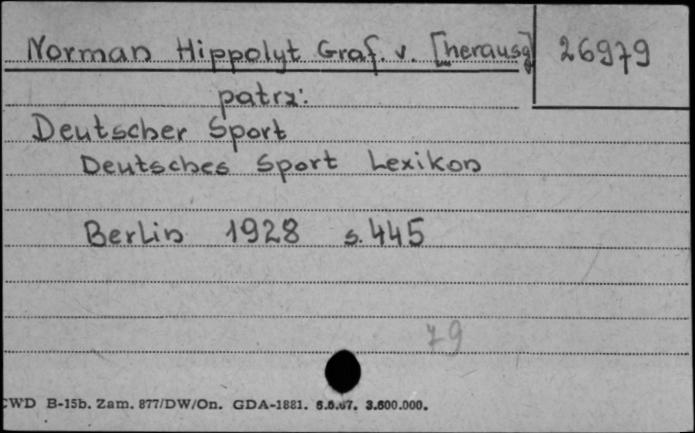 Norman Hippolyt Graf. v. [herausg]
26979
patrz:
Deutscher Sport
Deutsches Sport Lexikon
Berlin 1928 s. 445
79
CWD B-15b. Zam. 877/DW/On. GDA-1881. 6.6.67. 3.600.000.